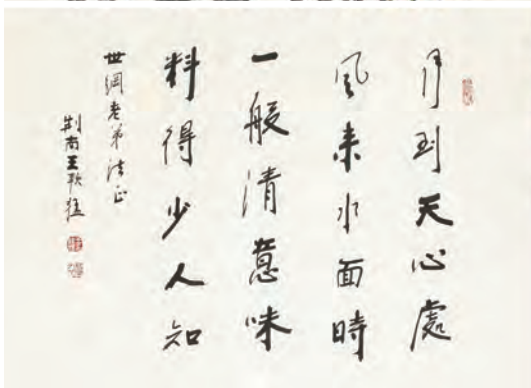 月到天心處
風来水面時
一般清意味
料得少人知
世綱老弟法正
荆南王